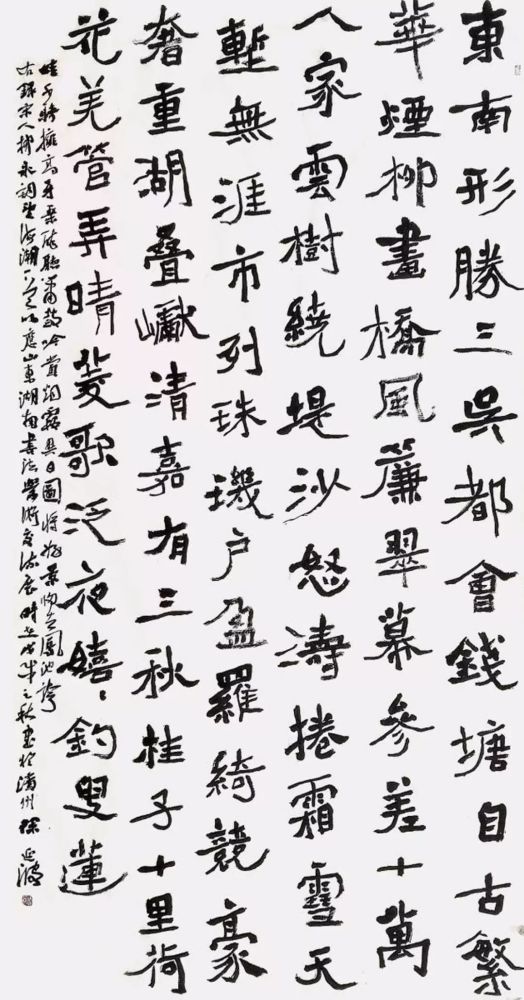 東南形勝三吳都會錢塘自古繁
華煙柳畫橋風簾翠幕參差十萬
人家雲樹繞堤沙怒濤捲霜雪天
塹無涯市列珠璣戶盈羅綺競豪
奢重湖疊巘清嘉有三秋桂子十里荷
花羌管弄晴菱歌泛夜嬉〻釣叟蓮
娃千騎擁高牙乘醉聽簫鼓吟賞烟霞異日圖將好景歸去鳳池誇
右錄宋人柳永詞望海潮一首以應山東湖南書法學術交流展時之秋書於濟州徐